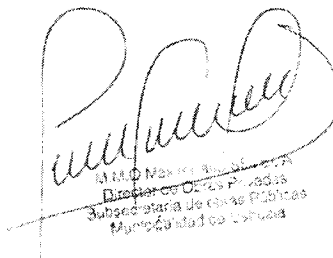 M.M.O
Director de Obras Privadas
Subsecretaría de obras Públicas
Municipalidad de Ushuaia